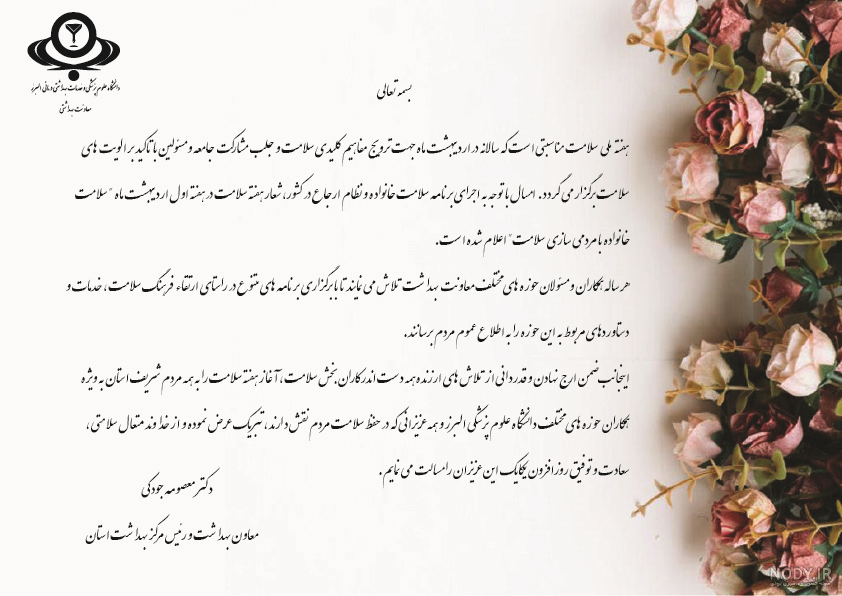 دانشگاه علوم پزشکی و خدمات بهداشتی درمانی البرز
معاونت بهداشتی
بسمه تعالی
هفته ملی سلامت مناسبتی است که سالانه در اردیبهشت ماه جهت ترویج مفاهیم کلیدی سلامت و جلب مشارکت جامعه و مسئولین با تاکید بر الویت های
سلامت برگزار می گردد. امسال با توجه به اجرای برنامه سلامت خانواده و نظام ارجاع در کشور، شعار هفته سلامت در هفته اول اردیبهشت ماه "سلامت
خانواده با مردمی سازی سلامت" اعلام شده است.
هر ساله همکاران و مسئولان حوزه های مختلف معاونت بهداشت تلاش می نمایند تا با برگزاری برنامه های متنوع در راستای ارتقاء فرهنگ سلامت، خدمات و
دستاوردهای مربوط به این حوزه را به اطلاع عموم مردم برسانند.
اینجانب ضمن ارج نهادن و قدردانی از تلاش های ارزنده همه دست اندرکاران بخش سلامت، آغاز هفته سلامت را به همه مردم شریف استان به ویژه
همکاران حوزه های مختلف دانشگاه علوم پزشکی البرز و همه عزیزانی که در حفظ سلامت مردم نقش دارند، تبریک عرض نموده و از خداوند متعال سلامتی،
سعادت و توفیق روزافزون یکایک این عزیزان را مسالت می نمایم.
دکتر معصومه جودکی
معاون بهداشت و رئیس مرکز بهداشت استان
NODY.IR